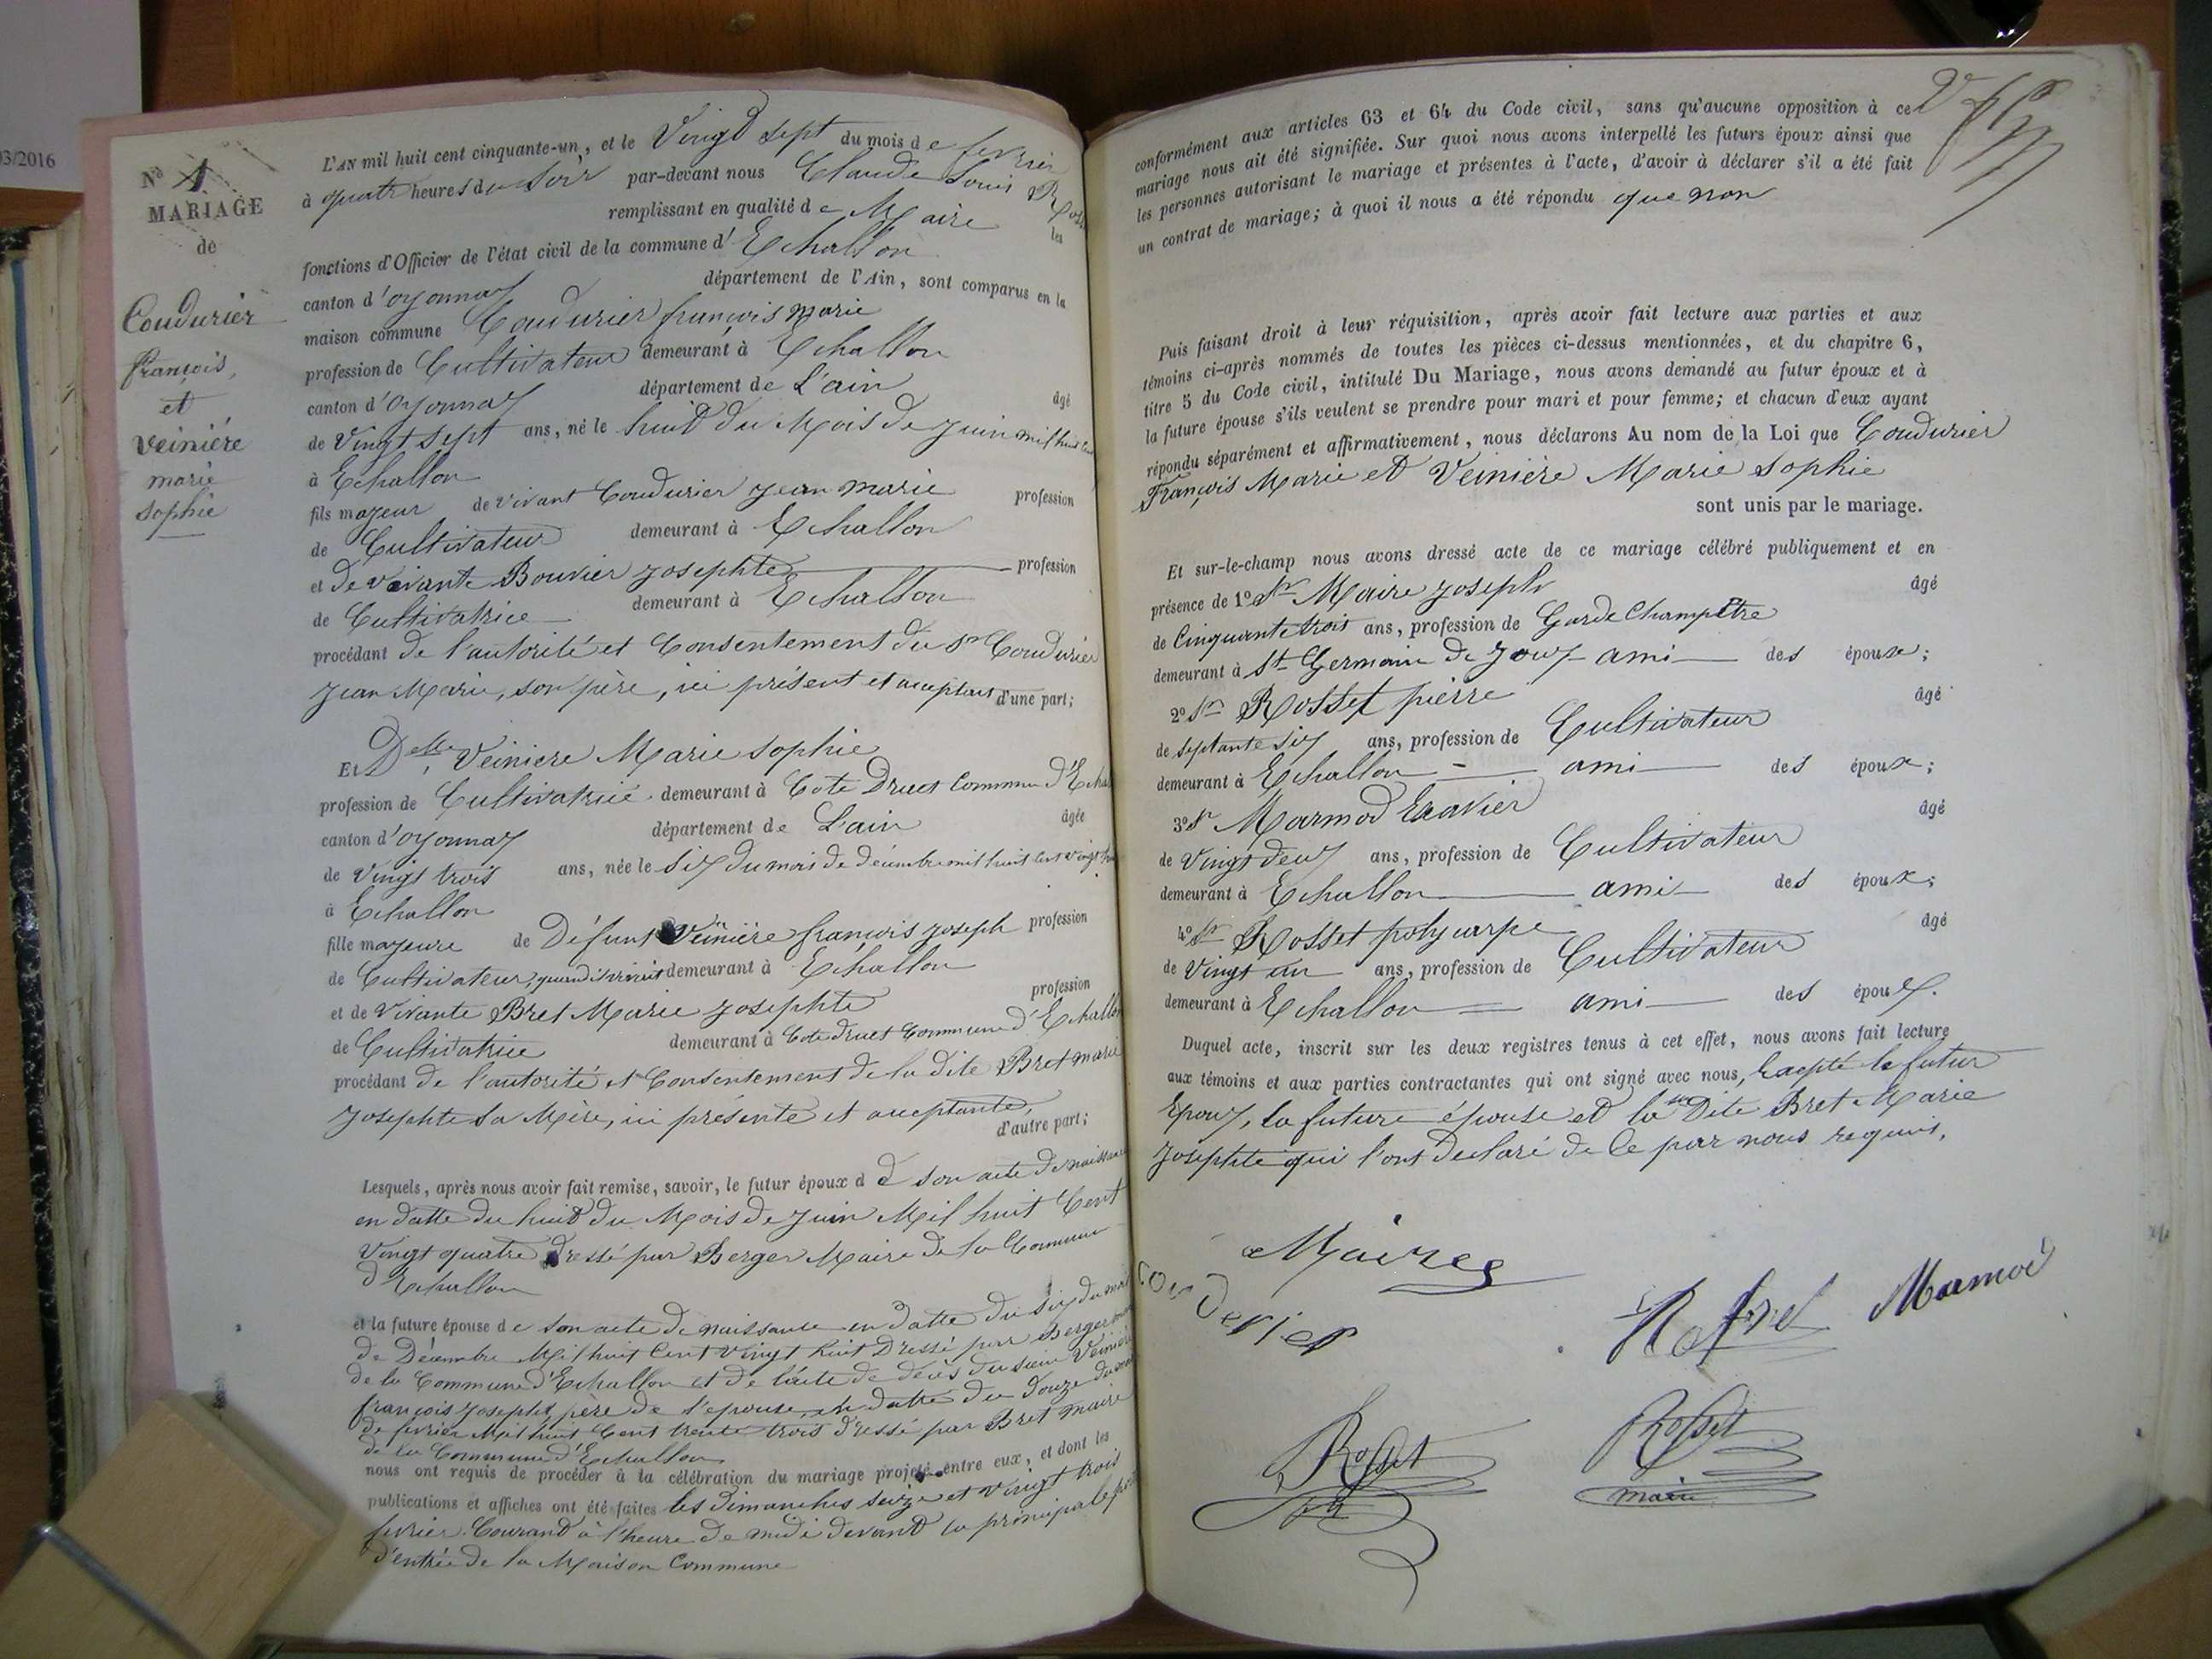 03/2016
N° 1
MARIAGE
de
Coudurier
françois,
et
veinière
marie
sophie
L'AN mil huit cent cinquante-un, et le Vingt sept du mois de fevrier
à quatre heures du soir par-devant nous Claude Louis
remplissant en qualité de Maire les
fonctions d'Officier de l'état civil de la commune d'Echallon
canton d'oyonnax département de l'Ain, sont comparus en la
maison commune Coudurier françois marie
profession de Cultivateur demeurant à Echallon
canton d'Oyonnax département de L'ain âgé
de Vingt sept ans, né le huit du Mois de Juin mil huit
à Echallon
fils majeur de vivant Coudurier jean marie profession
de Cultivateur demeurant à Echallon
et de vivante Bouvier josephte profession
de Cultivatrice demeurant à Echallon
procédant de l'autorité et Consentement du Sr Coudurier
jean Marie, son père, ici présent et acceptant d'une part;
Et Delle Veiniere Marie sophie
profession de Cultivatrice demeurant à Cote Druet Commune d'Echal
canton d'oyonnax département de L'ain âgée
de Vingt trois ans, née le six du mois de décembre mil huit cent vingt
à Echallon
fille majeure de Défunt Veinière françois joseph profession
de Cultivateur, quand il vivait demeurant à Echallon
et de Vivante Bret Marie josephte profession
de Cultivatrice demeurant à Cote druet Commune d'Echallon
procédant de l'autorité et Consentement de la dite Bret marie
josephte sa Mère, ici présente et acceptante, d'autre part;
Lesquels, après nous avoir fait remise, savoir, le futur époux d e son acte de naissance
en datte du huit du Mois de juin Mil huit Cent
Vingt quatre Dressé par Berger Maire de la Commune
d'Echallon
et la future épouse de son acte de naissance en datte du six du mois
de Décembre Mil huit Cent Vingt huit Dressé par Berger
de la Commune d'Echallon et de l'acte de décès du sieur Veinière
françois joseph, père de l'epouse, en datte du Douze du
de fevrier Mil huit Cent trente trois dressé par Bret maire
de la Commune d'Echallon
nous ont requis de procéder à la célébration du mariage projeté entre eux, et dont les
publications et affiches ont été faites les dimanches seize et vingt trois
fevrier Courant à l'heure de midi devant la principale
d'entrée de la Maison Commune
conformément aux articles 63 et 64 du Code civil, sans qu'aucune opposition à ce
mariage nous ait été signifiée. Sur quoi nous avons interpellé les futurs époux ainsi que
les personnes autorisant le mariage et présentes à l'acte, d'avoir à déclarer s'il a été fait
un contrat de mariage; à quoi il nous a été répondu que non
Puis faisant droit à leur réquisition, après avoir fait lecture aux parties et aux
témoins ci-après nommés de toutes les pièces ci-dessus mentionnées, et du chapitre 6,
titre 5 du Code civil, intitulé Du Mariage, nous avons demandé au futur époux et à
la future épouse s'ils veulent se prendre pour mari et pour femme; et chacun d'eux ayant
répondu séparément et affirmativement, nous déclarons Au nom de la Loi que Coudurier
François Marie et Veinière Marie Sophie
sont unis par le mariage.
Et sur-le-champ nous avons dressé acte de ce mariage célébré publiquement et en
présence de 1° Sr Maire joseph âgé
de Cinquante trois ans, profession de Garde Champêtre
demeurant à St Germain de Joux ami des époux;
2° Sr Rosset pierre âgé
de septante six ans, profession de Cultivateur
demeurant à Echallon ami des époux;
3° Sr Marmod Exavier âgé
de Vingt deux ans, profession de Cultivateur
demeurant à Echallon ami des époux;
4° Sr Rosset polycarpe âgé
de Vingt un ans, profession de Cultivateur
demeurant à Echallon ami des époux.
Duquel acte, inscrit sur les deux registres tenus à cet effet, nous avons fait lecture
aux témoins et aux parties contractantes qui ont signé avec nous, Excepté le futur
Epoux, la future épouse et la Dite Bret Marie
josephte qui l'ont declaré de Ce par nous requis,
Maire
Couderier
Marmod
Rosset
Rosset
maire